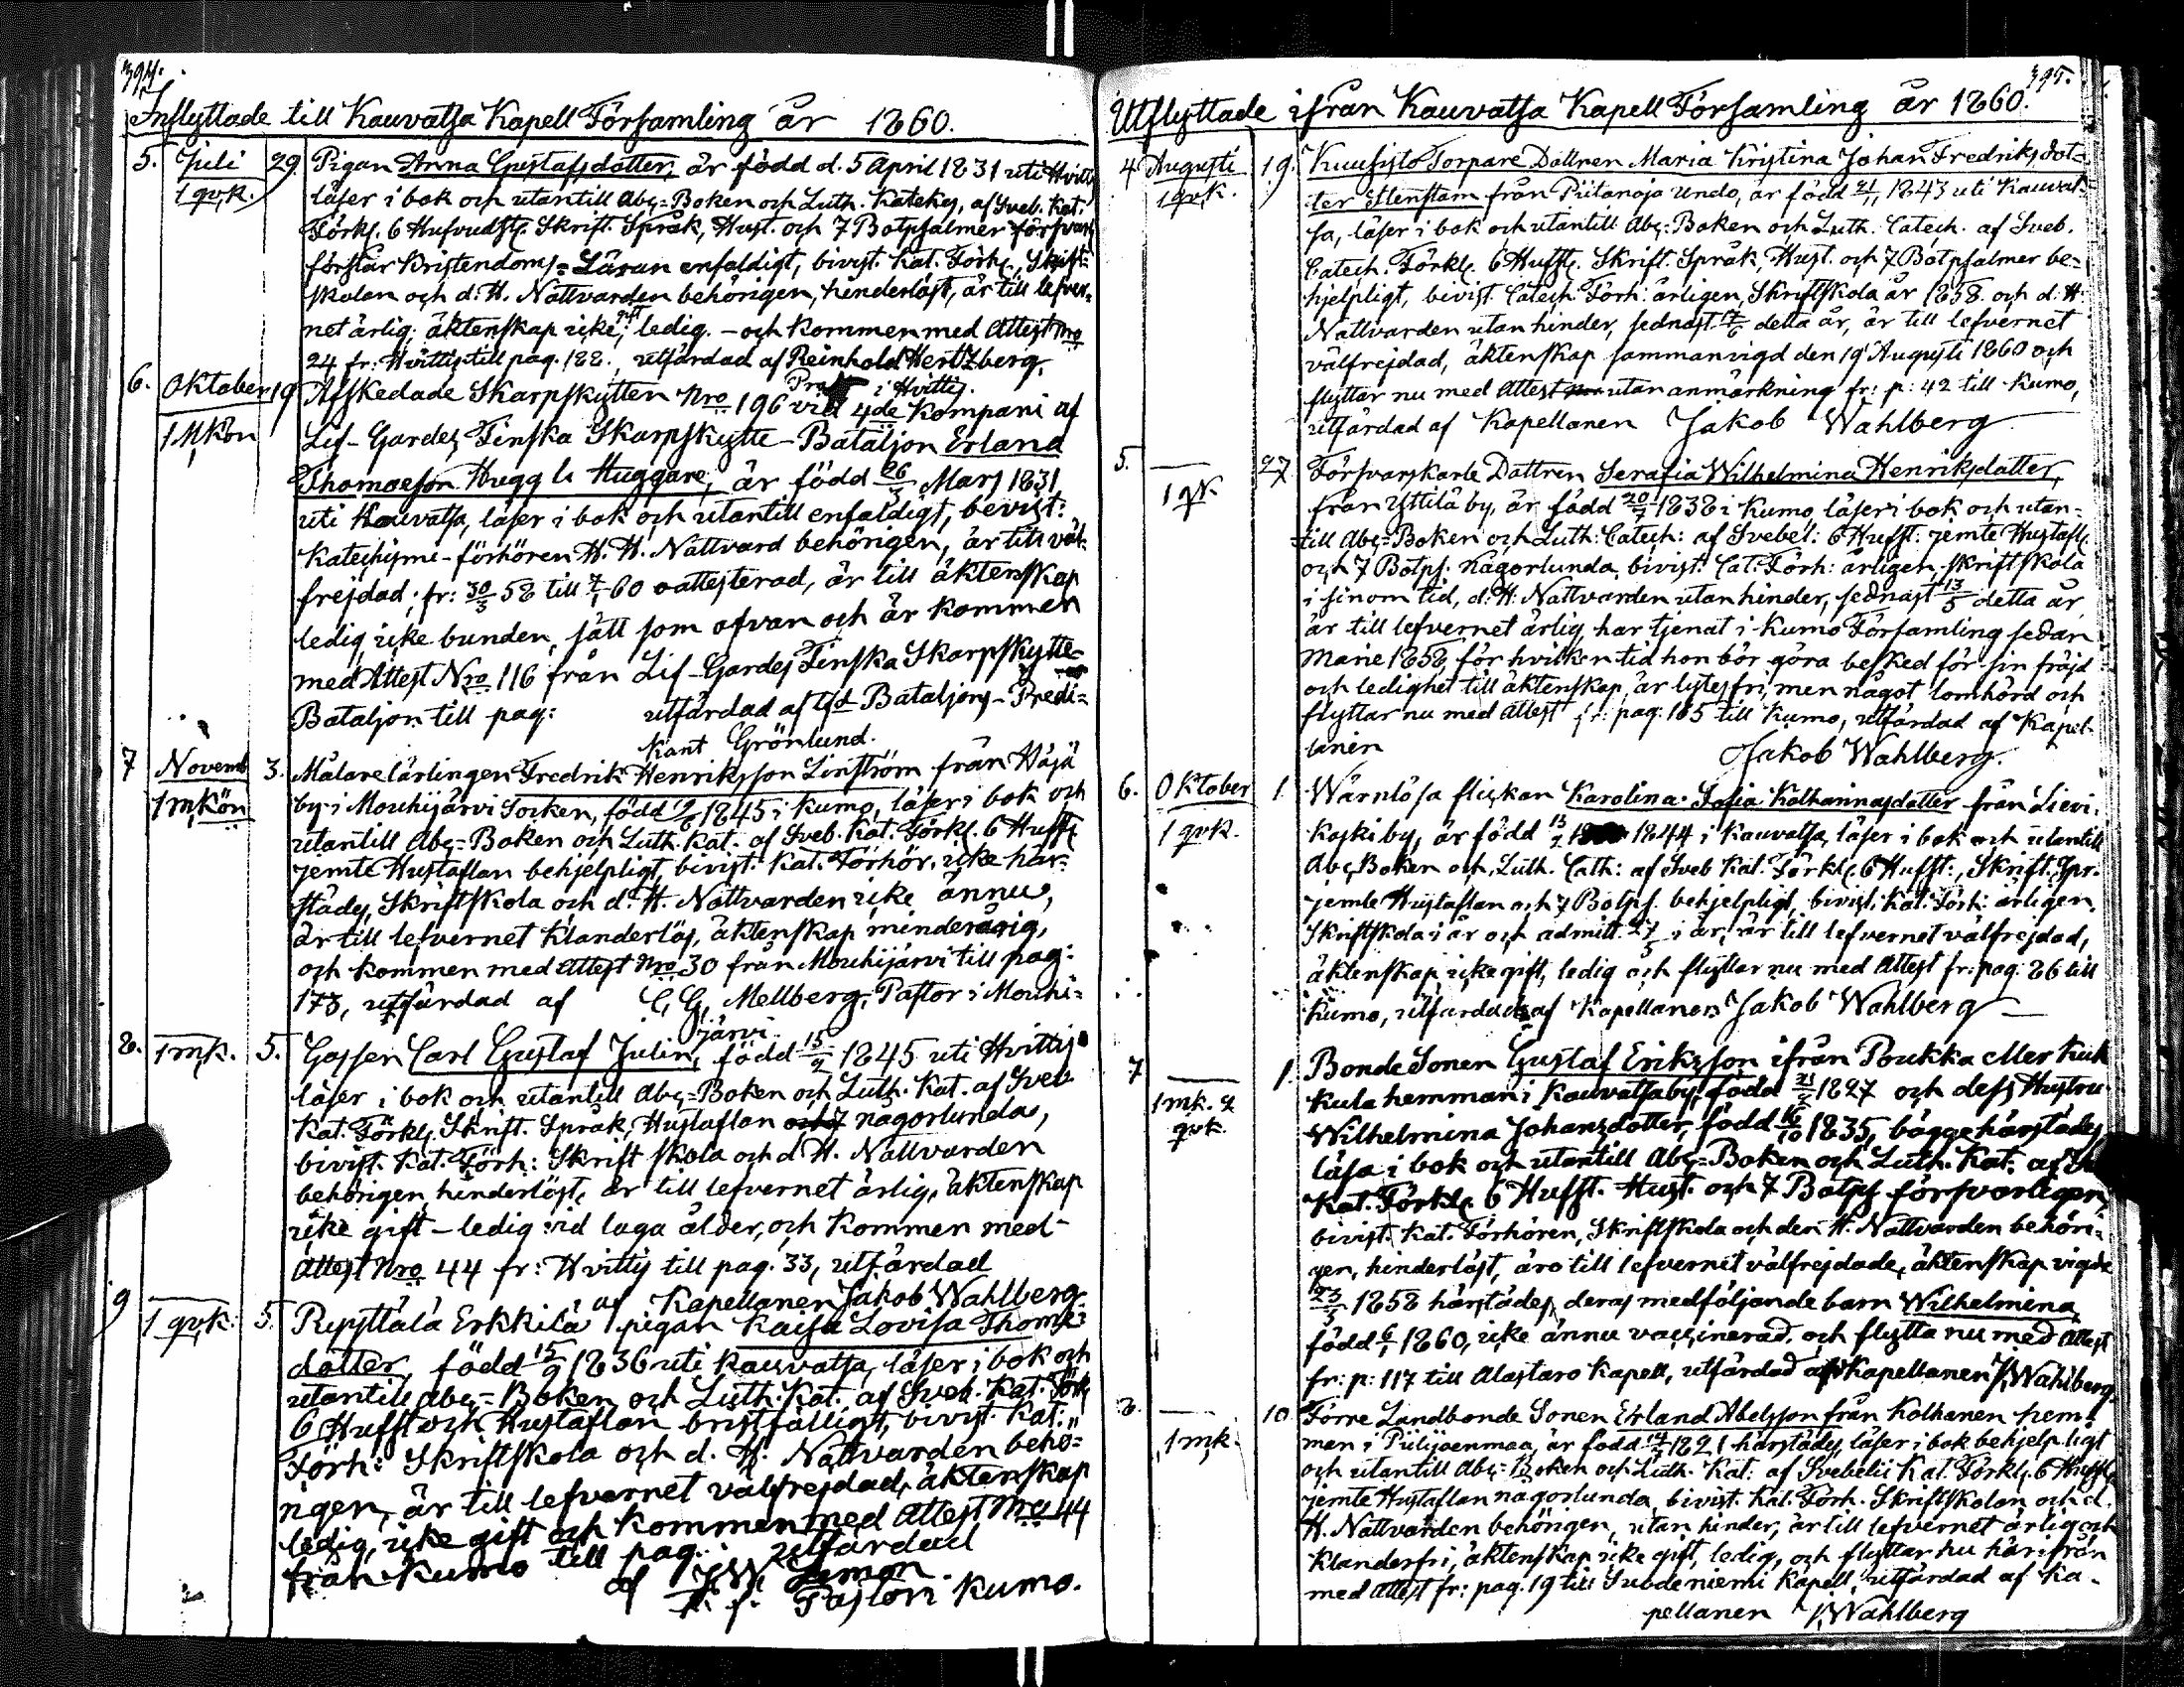 394.
Inflyttade till Kauvatsa Kapell Församling år 1860.
5. Juli 29. Pigan Anna Gustafsdotter, är född d. 5 April 1831 uti Hvittis
1 qvk. läser i bok och utantill Abc=Boken och Luth. Katekes, af Sveb. Kat.
Förkl. 6 Hufvudst. Skrift. Språk, Hust. och 7 Botpsalmer försvarl
förstår Kristendoms=Läran enfaldigt, bivist. Kat. Förh., Skrift=
skolan och d. H. Nattvarden behörigen, hinderlöst, är till lefver=
net ärlig; äktenskap icke gift, ledig. – och kommen med Attest Nro
24 fr: Hvittis till pag. 188., utfärdad af Reinhold Hertzberg,
Prost i Hvittis.
6. Oktober 19 Afskedade Skarpskytten Nro 196 vid 4de Kompani af
1 Mkön Lif-Gardes Finska Skarpskytte-Bataljon Erland
Thomasson Hugg l. Huggare, är född 26/3 Mars 1831
uti Kauvatsa, läser i bok och utantill enfaldigt, bevist:
Katechismi-förhören H. H. Nattvard behörigen, är till väl=
frejdad; fr: 30/3 58 till 7/1 60 oattesterad, är till äktenskap
ledig icke bunden, sätt som ofvan och är kommen
med Attest Nro 116 från Lif-Gardes Finska Skarpskytte=
Bataljon till pag: utfärdad af Bataljons-Predi=
kant Grönlund.
7 Novemb 3. Målarelärlingen Fredrik Henriksson Linström från Häjä
1 mkön by i Mouhijärvi Socken, född 19/6 1845 i Kumo, läser i bok och
utantill Abc=Boken och Luth. Kat. af Sveb. Kat. Förkl. 6 Hufst
jemte Hustaflan behjelpligt, bivist. Kat. Förhör, icke här=
städes, Skriftskola och d. H. Nattvarden icke ännu,
är till lefvernet klanderlös, äktenskap minderårig,
och kommen med Attest Nro 30 från Mouhijärvi till pag:
173, utfärdad af C. G. Mellberg, Pastor i Mouhi=
järvi.
8. 1 mk. 5. Gossen Carl Gustaf Julin, född 15/2 1845 uti Hvittis
läser i bok och utantill Abc=Boken och Luth. Kat. af Sveb
Kat. Förkl. Skrift. Språk, Hustaflan någorlunda,
bivist. Kat. Förh: Skriftskola och d H. Nattvarden
behörigen, hinderlöst, är till lefvernet ärlig, äktenskap
icke gift – ledig vid laga ålder, och kommen med
Attest Nro 44 fr: Hvittis till pag. 33, utfärdad
af Kapellanen Jakob Wahlberg.
9 1 qvk. 5. Erkkilä pigan Kaisa Lovisa Thoms=
dotter, född 15/9 1836 uti Kauvatsa, läser i bok och
utantill Abc=Boken och Luth. Kat. af Sveb. Kat. Förkl
6 Hufst och Hustaflan bristfälligt, bivist. Kat:
Förh: Skriftskola och d. H. Nattvarden behö=
rigen, är till lefvernet välfrejdad, äktenskap
ledig, icke gift och kommen med Attest Nro 44
från Kumo till pag. utfärdad
af Lemon.
Pastor i Kumo.
395.
Utflyttade ifrån Kauvatsa Kapell Församling år 1860.
4 Augusti 19. Kuusisto Torpare Dottren Maria Kristina Johan Fredriksdot=
1 qvk. ter Stenstam från Piitanoja Undo, är född 21/11 1843 uti Kauvat=
sa, läser i bok och utantill Abc=Boken och Luth. Catech. af Sveb.
Catech. Förkl. 6 Hufst. Skrift. Språk, Hust. och 7 Botpsalmer be=
hjelpligt, bivist. Catech. Förh: årligen, Skriftskola år 1858. och d. H.
Nattvarden utan hinder, sednast detta år, är till lefvernet
välfrejdad, äktenskap sammanvigd den 19 Augusti 1860 och
flyttar nu med Attest utan anmärkning fr: p: 42 till Kumo,
utfärdad af Kapellanen Jakob Wahlberg
5. 27. Försvarskarls Dottren Serafia Wilhelmina Henriksdotter,
1 qk. från Yttilä by, är född 20/7 1838 i Kumo, läser i bok och utan=
till Abc=Boken och Luth: Catech: af Svebel: 6 Hufst: jemte Hustafl.
och 7 Botps. någorlunda, bivist: Cat. Förh: årligen, Skriftskola
i sinom tid, d. H. Nattvarden utan hinder, sednast 13/5 detta år
är till lefvernet ärlig, har tjenat i Kumo Församling sedan
Marie 1858, för hvilken tid hon bör göra besked för sin fräjd
och ledighet till äktenskap, är lytesfri, men något lomhörd och
flyttar nu med Attest fr: pag: 165 till Kumo, utfärdad af Kapel-
lanen Jakob Wahlberg.
6. Oktober 1. Wärnlösa flickan Karolina Sofia Katharinasdotter från Lievi=
1 qvk. koski by, är född 1844 i Kauvatsa, läser i bok och utantill
Abc-Boken och Luth. Cath: af Sveb Kat. Förkl. 6 Hufst:, Skrift. Spr.
jemte Hustaflan och 7 Botps. behjelpligt, bivist. Kat. Förh: årligen,
Skriftskola i år och admitt. 27/5 i år, är till lefvernet välfrejdad,
äktenskap, icke gift, ledig och flyttar nu med Attest fr: pag: 86 till
Kumo, utfärdad af Kapellanen Jakob Wahlberg
7 1. Bonde Sonen Gustaf Eriksson ifrån Poukka eller
1 mk. & kula hemman i Kauvatsa by, född 1827 och dess Hustru
qvk. Wilhelmina Johansdotter, född 16/10 1835, bägge härstädes
läsa i bok och utantill Abc=Boken och Luth. Kat. af
Kat. Förkl. 6 Hufst. Hust. och 7 Botps försvarligen,
bivist. Kat. Förhören, Skriftskola och den H. Nattvarden behöri=
gen, hinderlöst, äro till lefvernet välfrejdade, äktenskap vigde
23/5 1858 härstädes, deras medföljande barn Wilhelmina
född 6/1 1860, icke ännu vaccinerad, och flytta nu med Attest
fr: p: 117 till Alastaro Kapell, utfärdad af Kapellanen J. Wahlberg.
8. 10. Förre Landbonde Sonen Erland Abelsson från Kolkanen hem=
1 mk. man i Piilijoenmaa, är född 1821 härstädes, läser i bok behjelpligt
och utantill Abc=Boken och Luth. Kat: af Svebelii Kat. Förkl. 6 Hufst
jemte Hustaflan någorlunda, bivist. Kat. Förh. Skriftskolan och d.
H. Nattvarden behörigen, utan hinder, är till lefvernet ärlig och
klanderfri, äktenskap icke gift, ledig, och flyttar nu härifrån
med Attest fr: pag. 19 till Suodeniemi Kapell, utfärdad af Ka-
pellanen J. Wahlberg